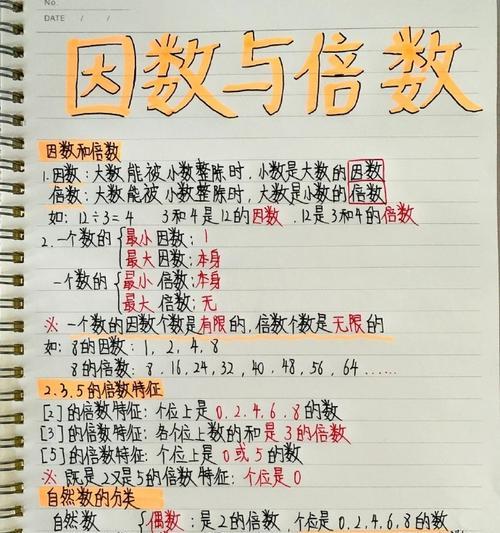 No.
DATE / /
因数与倍数
因数和倍数
1.因数:大数能被小数整除时,小数是大数的因数
倍数:大数能被小数整除时,大数是小数的倍数
如:12÷3=4 3和4是12的因数.12是3和4的倍数
2.一个数的{最小因数:1
最大因数:本身
一个数的{最小倍数:本身
最大倍数:无
※一个数的因数个数是有限的,倍数个数是无限的
如:8的因数:1,2,4,8
8的倍数:8.16.24,32,40.48,56,64......
2.3.5的倍数特征
[2]的倍数特征:个位上是0.2.4.6.8的数
[3]的倍数特征:各个位上数的和是3的倍数
[5]的倍数特征:个位上是0或5的数
※既是2又是5的倍数特征:个位是0
自然数的分类
自然数{偶数:是2的倍数,个位是0.2.4.6.8的数